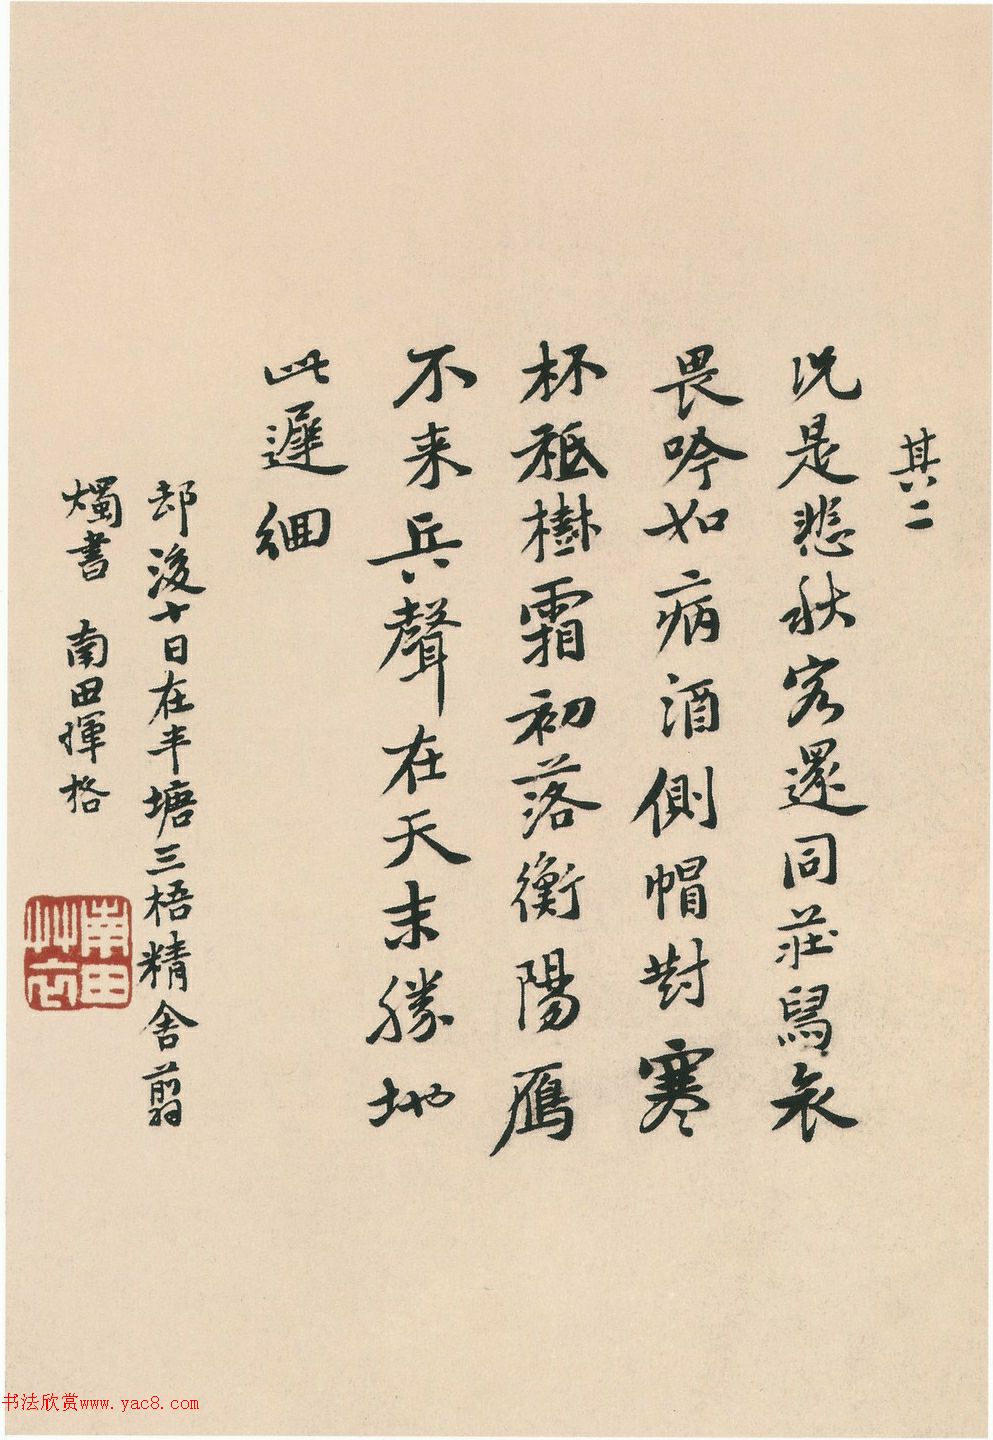 其二
況是悲秋客還同莊舄哀
畏吟如病酒側帽對寒
杯祗樹霜初落衡陽鴈
不来兵聲在天末勝地
此遲徊
却後十日在半塘三梧精舍翦
燭書 南田惲格
南田艸衣
书法欣赏www.yac8.com